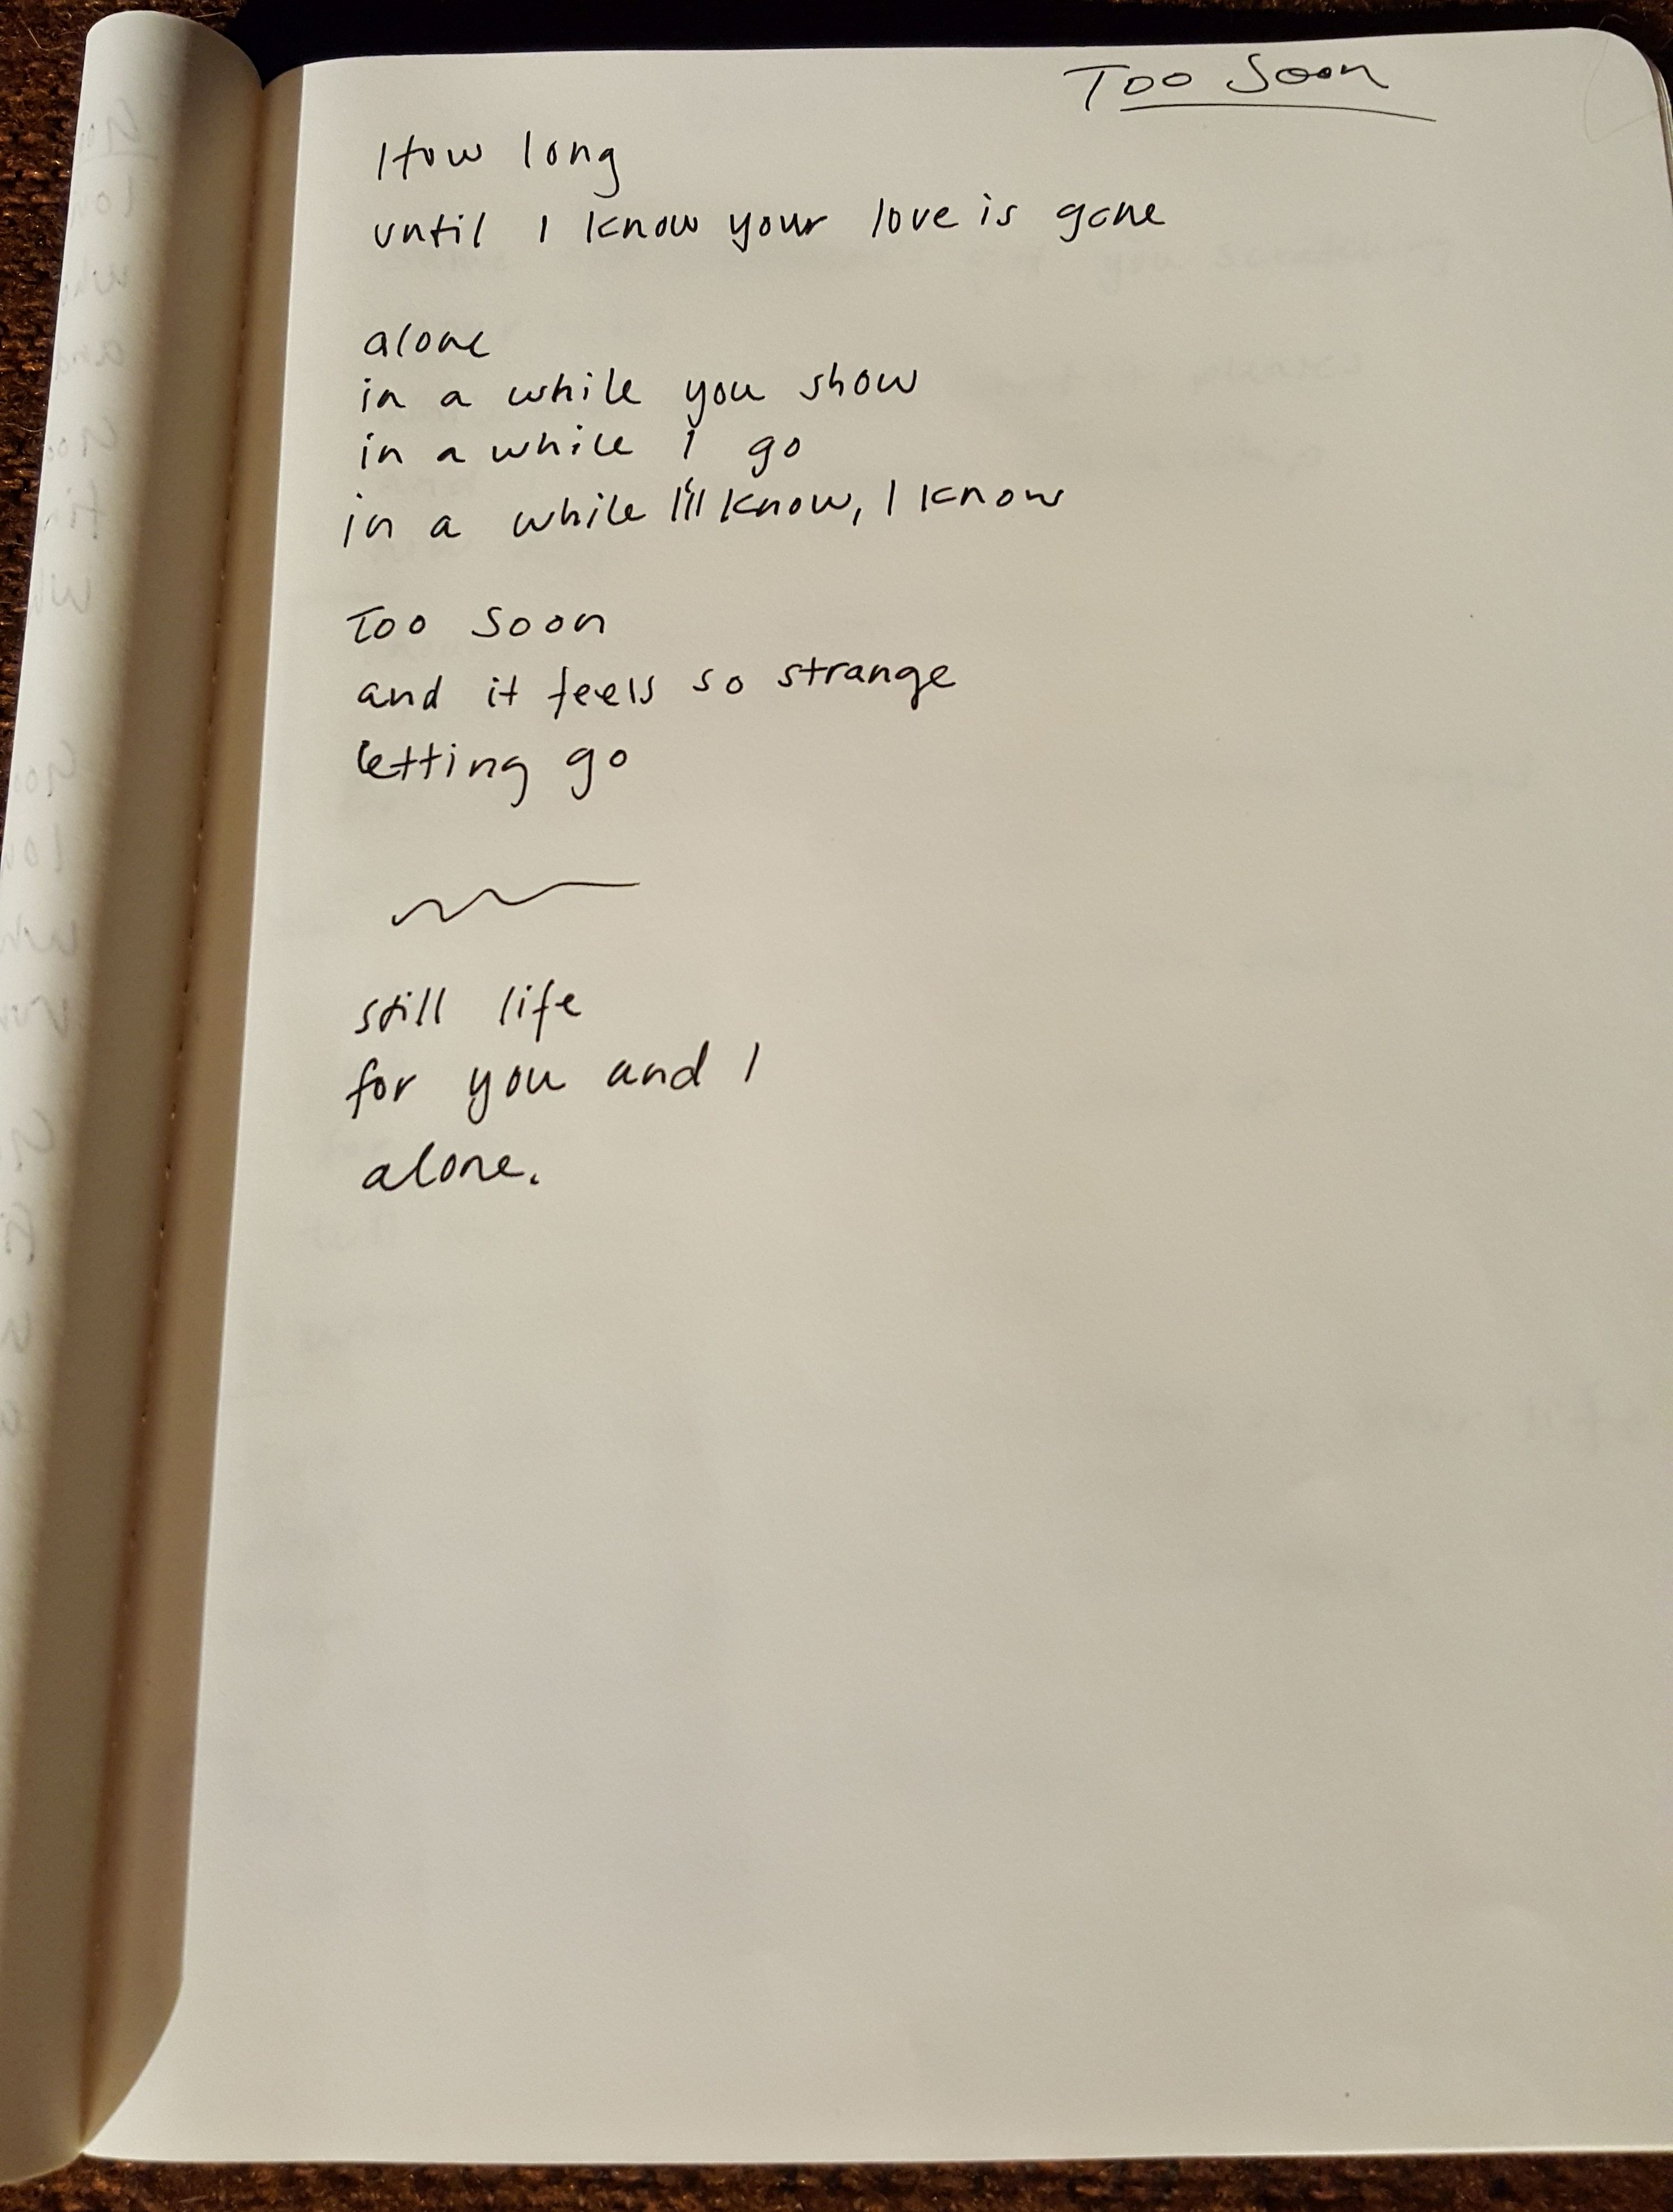 Too Soon
How long
until I know your love is gone
alone
in a while you show
in a while I go
in a while I'll know, I know
Too Soon
and it feels so strange
letting go
still life
for you and I
alone.